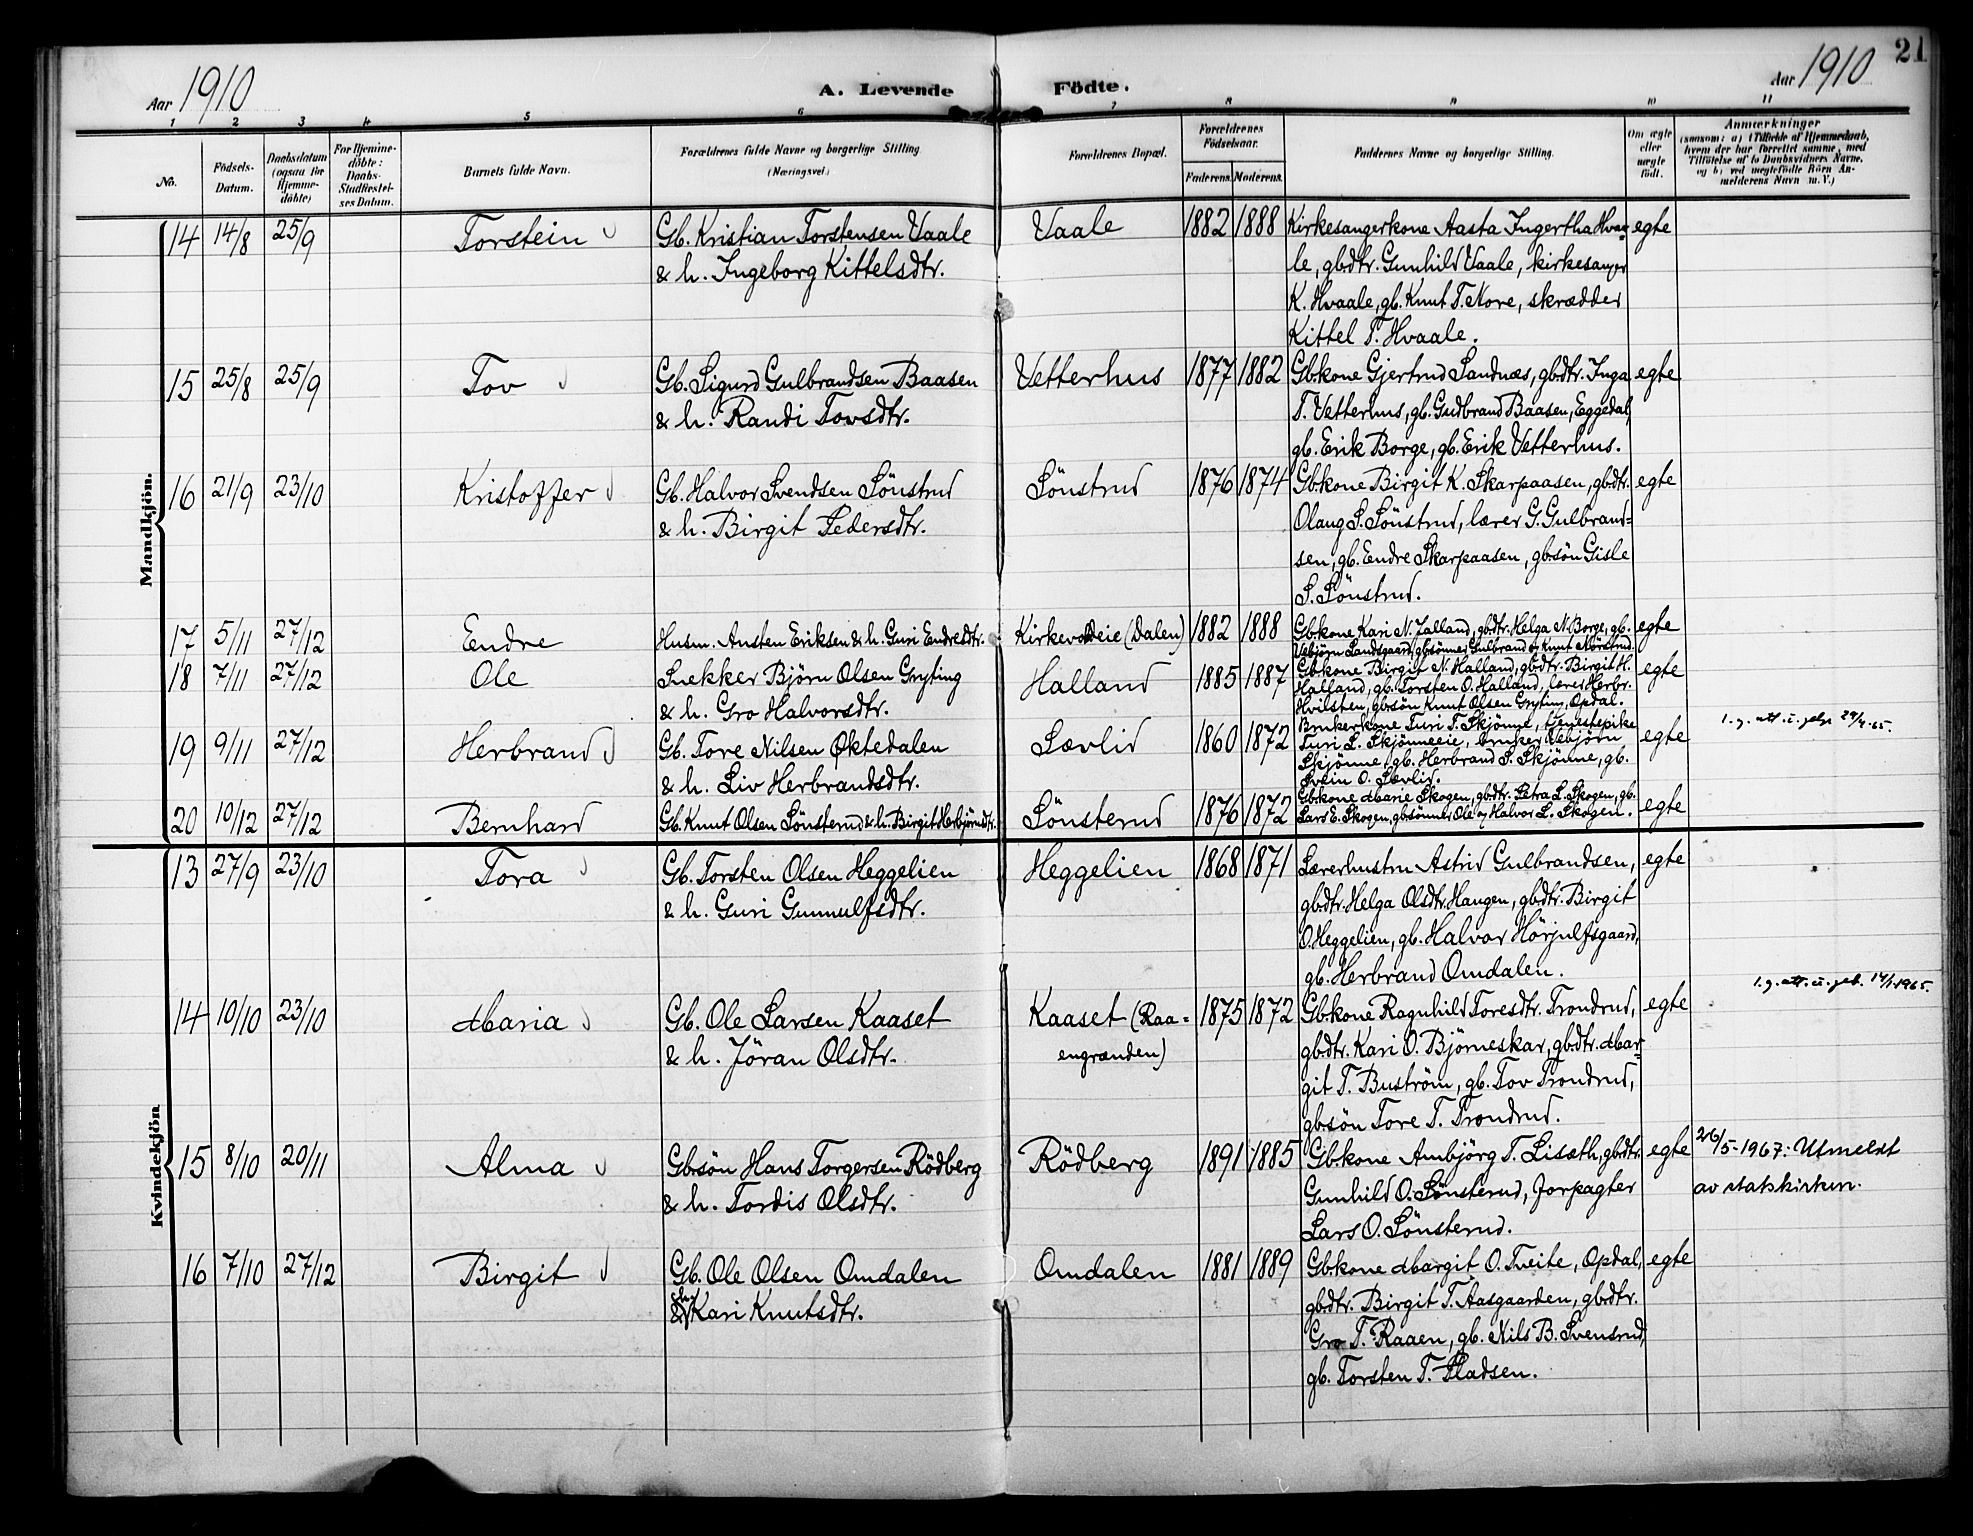 21
Aar 1910
A. Levende Födte.
Aar 1910
1 2 3 4 5 6 7 8 9 10 11
No.
Födsels-Datum.
Daabsdatum (ogsaa for Hjemme-döbte)
For Hjemme-döbte: Daabs-Stadfæstel-ses Datum.
Barnets fulde Navn.
Forældrenes fulde Navne og borgerlige Stilling. (Næringsvei.)
Forældrenes Bopæl.
Forældrenes Födselsaar.
Faderens. Moderens.
Faddernes Navne og borgerlige Stilling.
Om ægte eller uægte födt.
Anmærkninger
(saasom: a) i Tilfælde af Hjemmedaab,
hvem der har forrettet samme, med
Tilföielse af to Daabsvidners Navne,
og b) ved uægtefödte Börn An-
melderens Navn m. V.)
Mandkjön.
14 14/8 25/9 Torstein Gb. Kristian Torstensen Vaale Vaale 1882 1888 Kirkesangerkone Aasta Ingertha Hvaa- egte
& h. Ingeborg Kittelsdtr. le, gbdtr. Gunhild Vaale, kirkesanger
K. Hvaale, gb. Knut T. Nore, skrædder
Kittel T. Hvaale.
15 25/8 25/9 Tov Gb. Sigurd Gulbrandsen Baasen Vetterhus 1877 1882 Gbkone Gjertrud Sandnæs, gbdtr. Inga egte
& h. Randi Tovsdtr. T. Vetterhus, gb. Gudbrand Baasen, Eggedal,
gb. Erik Borge, gb. Erik Vetterhus.
16 21/9 23/10 Kristoffer Gb. Halvor Svendsen Sönstrud Sönstrud 1876 1874 Gbkone Birgit K. Skarpaasen, gbdtr. egte
& h. Birgit Pedersdtr. Olaug S. Sönstrud, lærer G. Gulbrand-
sen, gb. Eendre Skarpaasen, gbsön Gisle
S. Sönstrud.
17 5/11 27/12 Eendre Husm. Austen Eriksen & h. Guri Eendresdtr. (Dalen) 1882 1888 Gbkone Kari N. Jalland, gbdtr. Helga N. Borge, gb. egte
Vebjörn Landsgaard, gbsönner Gulbrand og Knut Nörstrud.
18 7/11 27/12 Ole Snekker Björn Olsen Gryting Halland 1885 1887 Gbkone Birgit N. Halland, gbdtr. Birgit H. egte
& h. Gro Halvorsdtr. Halland, gb. Torsten O. Halland, lærer Herbr.
Hvilsten, gbsön Knut Olsen Gryting, Opdal.
19 9/11 27/12 Herbrand Gb. Tore Nilsen Øktedalen Sævlid 1860 1872 Brukerkone Turi T. Skjönne, tjenestepike egte
& h. Liv Herbrandsdtr. Turi L. Skjönneeie, bruker Vebjörn
Skjönne, gb. Herbrand S. Skjönne, gb.
Svein O. Sævlid.
20 10/12 27/12 Bernhard Gb. Knut Olsen Sönsterud & h. Birgit Herbjörnsdtr. Sönsterud 1876 1872 Gbkone Marie Skogen, gbdtr. Petra L. Skogen, gb. egte
Lars E. Skogen, gbsönner Ole og Halvor L. Skogen.
Kvindekjön
13 27/9 23/10 Tora Gb. Torsten Olsen Heggelien Heggelien 1868 1871 Lærerhustru Astrid Gulbrandsen, egte
& h. Guri Gunnulfsdtr. gbdtr. Helga Olsdtr. Haugen, gbdtr. Birgit
O. Heggelien, gb. Halvor Hörjulfsgaard,
gb. Herbrand Omdalen.
14 10/10 23/10 Maria Gb. Ole Larsen Kaaset Kaaset (Raa- 1875 1872 Gbkone Ragnhild Toresdtr. Trondrud, egte
& h. Jöran Olsdtr. engrænden) gbdtr. Kari O. Björneskar, gbdtr. Mar-
git T. Buström, gb. Tov Trondrud,
gbsön Tore T. Trondrud.
15 8/10 20/11 Alma Gbsön Hans Torgersen Rödberg Rödberg 1891 1885 Gbkone Ambjörg T. Liseth, gbdtr. egte 26/5-1967: Utmeldt
& h. Tordis Olsdtr. Gunhild O. Sönsterud, Jorpagter av statskirken.
Lars O. Sönsterud.
16 7/10 27/12 Birgit Gb. Ole Olsen Omdalen Omdalen 1881 1889 Gbkone Margit O. Tveite, Opdal, egte
& h. Kari Knutsdtr. gbdtr. Birgit T. Aasgaarden, gbdtr.
Gro T. Raaen, gb. Nils B. Svensrud,
gb. Torsten T. Pladsen.